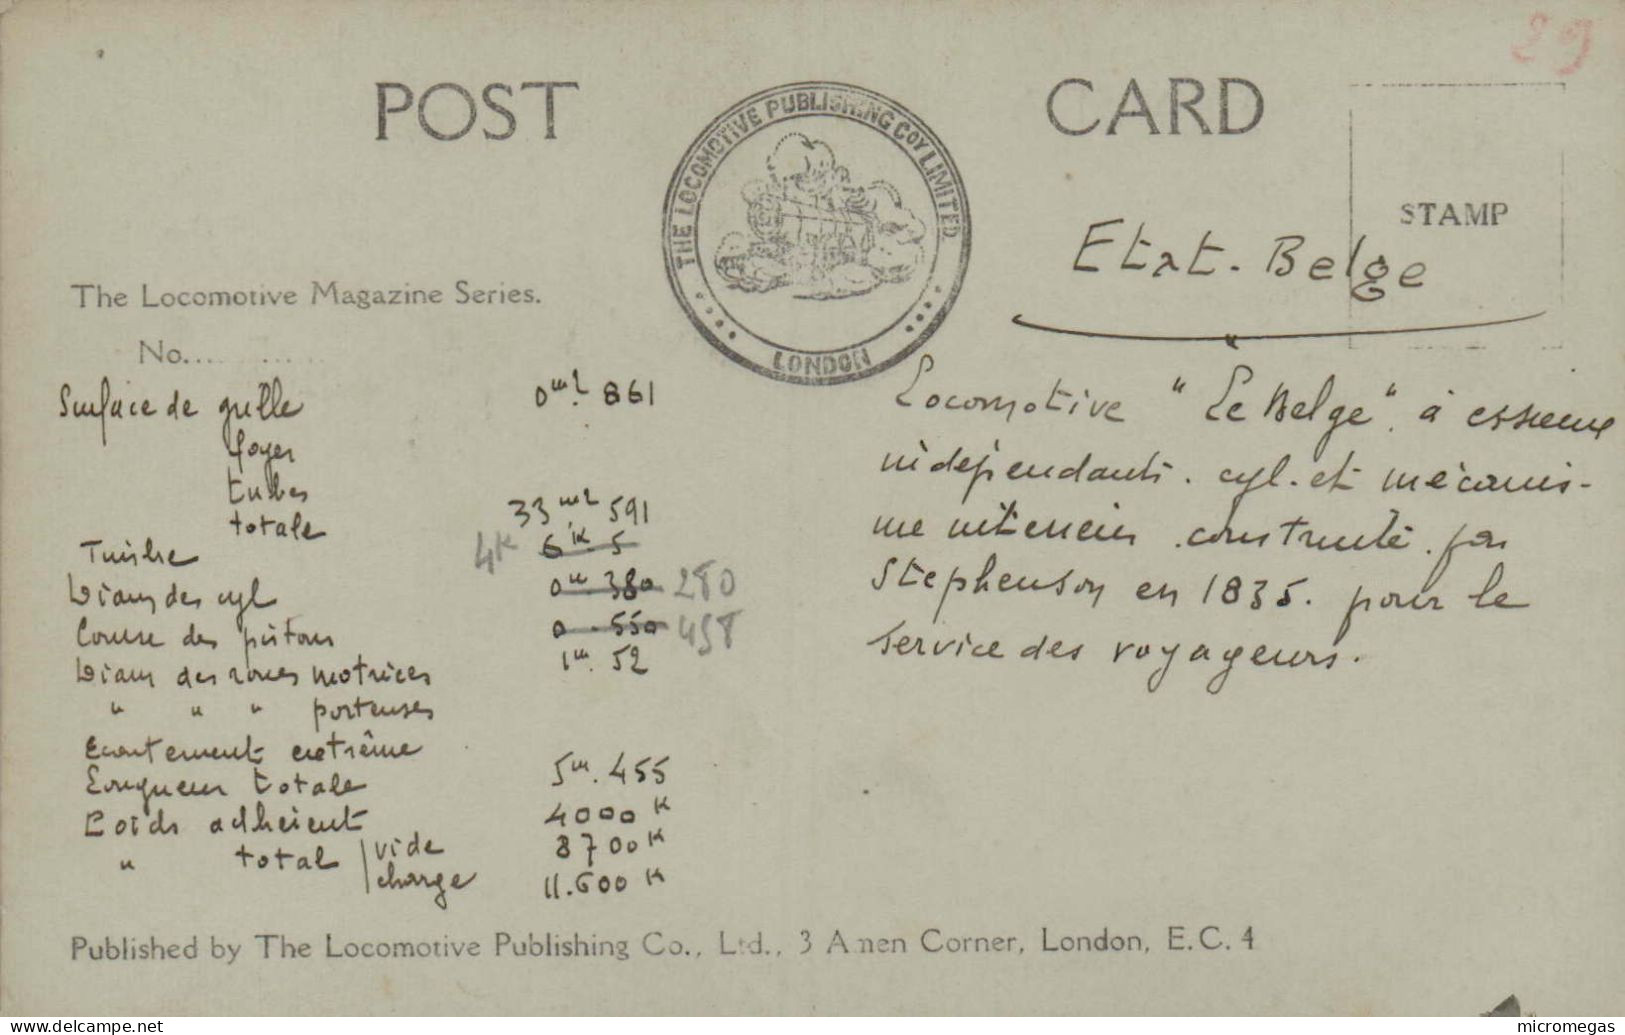 29
POST CARD
THE LOCOMOTIVE PUBLISHING COY LIMITED.
LONDON
STAMP
The Locomotive Magazine Series.
No....
Etat-Belge
Surface de grille 0m2. 861
foyer
tubes
totale 33m2 591
Timbre 4K 6K. 5
Diam des cyl 0m. 380 280
Course des pistons 0. 550 458
Diam des roues motrices 1m. 52
" " " porteuses
Ecartement extrême
Longueur totale 5m. 455
Poids adhérent 4000 K
" total vide 8700 K
charge 11.600 K
Locomotive "Le Belge". à essieux
indépendants. cyl. et mécanis-
me intérieur. construite. par
Stephenson en 1835. pour le
service des voyageurs.
Published by The Locomotive Publishing Co., Ltd., 3 Amen Corner, London, E.C. 4
micromegas
www.delcampe.net